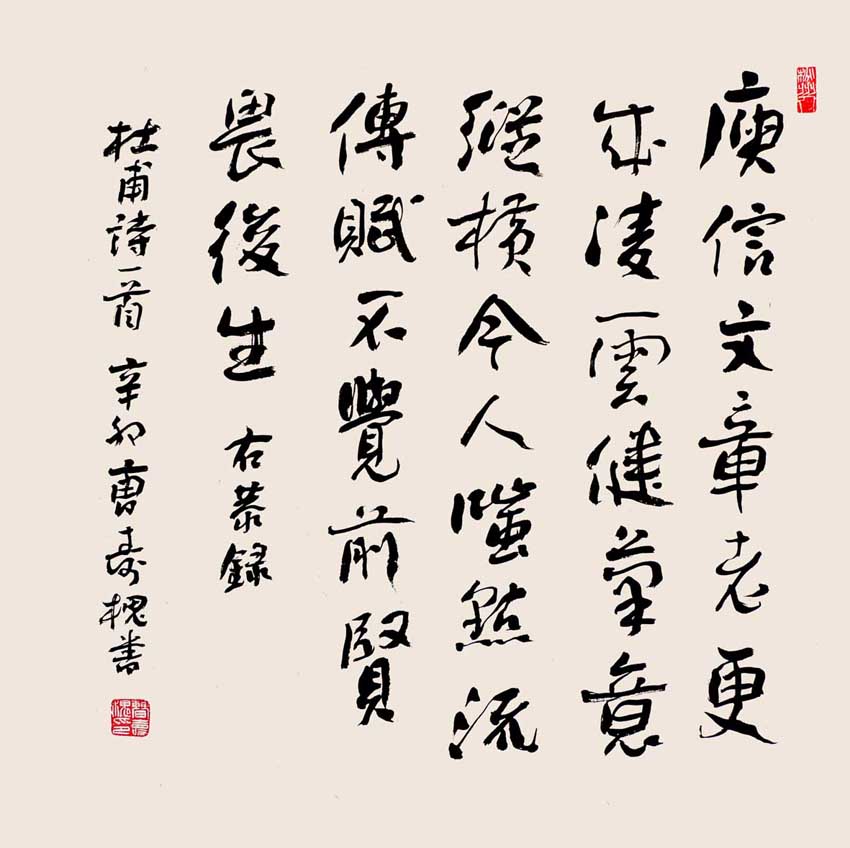 庾信文章老更
成凌雲健筆意
縱橫今人嗤點流
傳賦不覺前賢
畏後生 右恭錄
杜甫詩一首 辛卯曹壽槐書